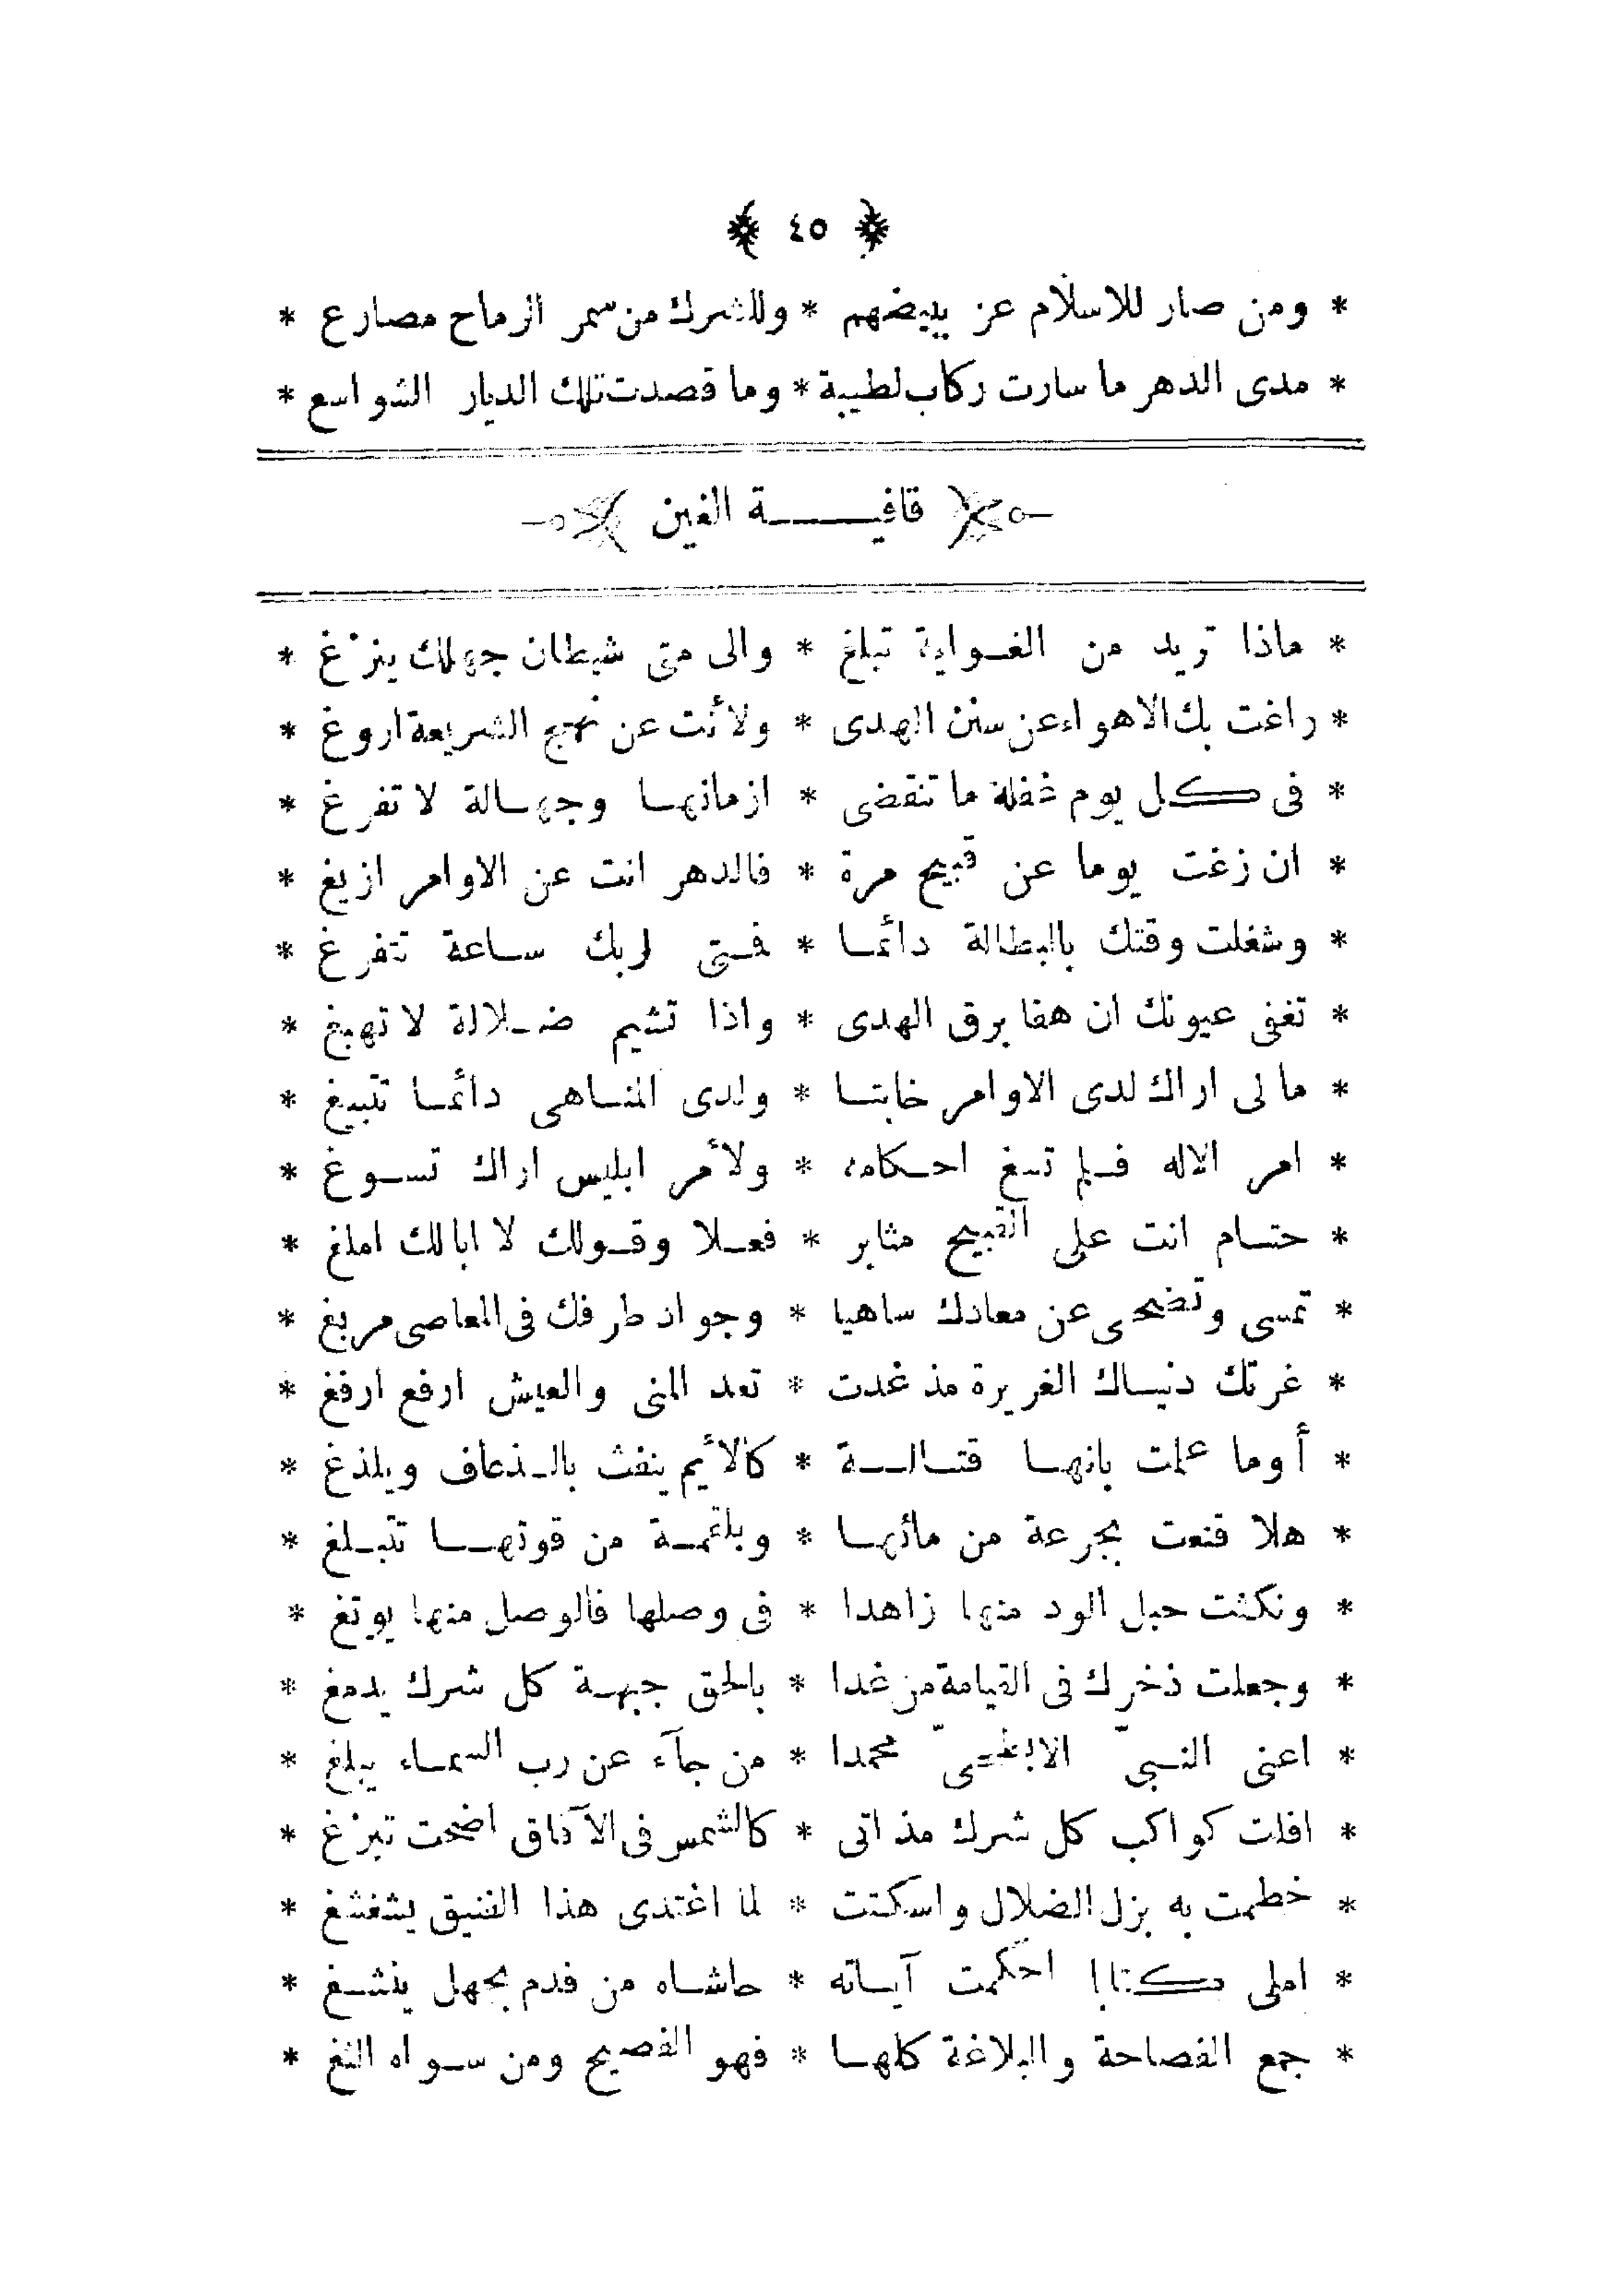 ﴿ ٤٥ ﴾
* ومن صار للاسلام عز ببيضهم * وللشرك من سمر الرماح مصارع *
* مدى الدهر ما سارت ركاب لطيبة * وما قصدت تلك الديار الشواسع *
قافيــة الغين
* ماذا تريد من الغواية تبلغ * والى متى شيطان جهلك ينزغ *
* راغت بك الاهواء عن سنن الهدى * ولأنت عن نهج الشريعة اروغ *
* فى كل يوم غفلة ما تنقضى * ازمانها وجهالة لا تفرغ *
* ان زغت يوما عن قبيح مرة * فالدهر انت عن الاوامر ازيغ *
* وشغلت وقتك بالبطالة دائما * فمتى لربك ساعة تتفرغ *
* تغفى عيونك ان هفا برق الهدى * واذا تشيم ضلالة لا تهبغ *
* مالى اراك لدى الاوامر خابتا * ولدى المناهى دائما تتبيغ *
* امر الاله فلم تسغ احكامه * ولأمر ابليس اراك تسوغ *
* حتام انت على القبيح مثابر * فعلا وقولك لا ابالك املغ *
* تمسى وتضحى عن معادك ساهيا * وجواد طرفك فى المعاصى مربغ *
* غرتك دنياك الغريرة مذ غدت * تعد المنى والعيش ارفع ارفغ *
* أوما علمت بانها قتالة * كالأيم ينفث بالذعاف ويلذغ *
* هلا قنعت بجرعة من مائها * وبلقمة من قوتها تتبلغ *
* ونكثت حبل الود منها زاهدا * فى وصلها فالوصل منها يوتغ *
* وجعلت ذخرك فى القيامة من غدا * بالحق جبهة كل شرك يدمغ *
* اعنى النبىّ الابطحىّ محمدا * من جآء عن رب السماء يبلغ *
* افلت كواكب كل شرك مذ اتى * كالشمس فى الآفاق اضحت تبزغ *
* خطمت به بزل الضلال واسكتت * لما اغتدى هذا الفنيق يشغشغ *
* املى كتابا احكمت آياته * حاشاه من فدم بجهل ينشغ *
* جمع الفصاحة والبلاغة كلها * فهو الفصيح ومن سواه الثغ *